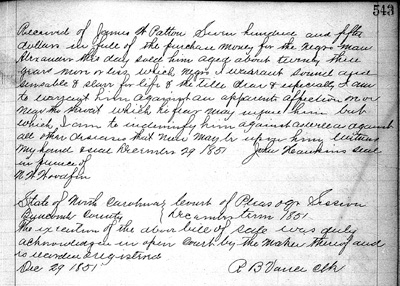 543
Received of James W Patton Seven hundred and fifty
dollars in full of the purchase money for the negro man
Alexander this day sold him aged about twenty three
years more or less which negro I warrant sound and
sensable & slave for life & the title clear & especially I am
to warrent him against an apparent affection on or
near the throat which he may injure him but
which I am to indemnify him against and also against
all other diseases that now may be upon him Witness
my hand & seal December 29 1851 John Hawkins seal
in presence of
N. W. Woodfin
State of North Carolina Court of Pleas & qr Session
Buncombe County December term 1851
The execution of the above bill of sale was duly
acknowledged in open Court by the maker thereof and
is recorded & registered
Dec 29 1851 R B Vance Clk